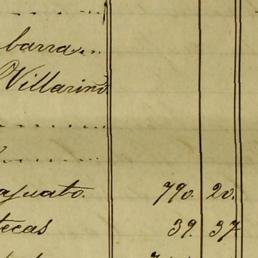 barra
Villarino
ajuato. 790. 20.
tecas 39. 37